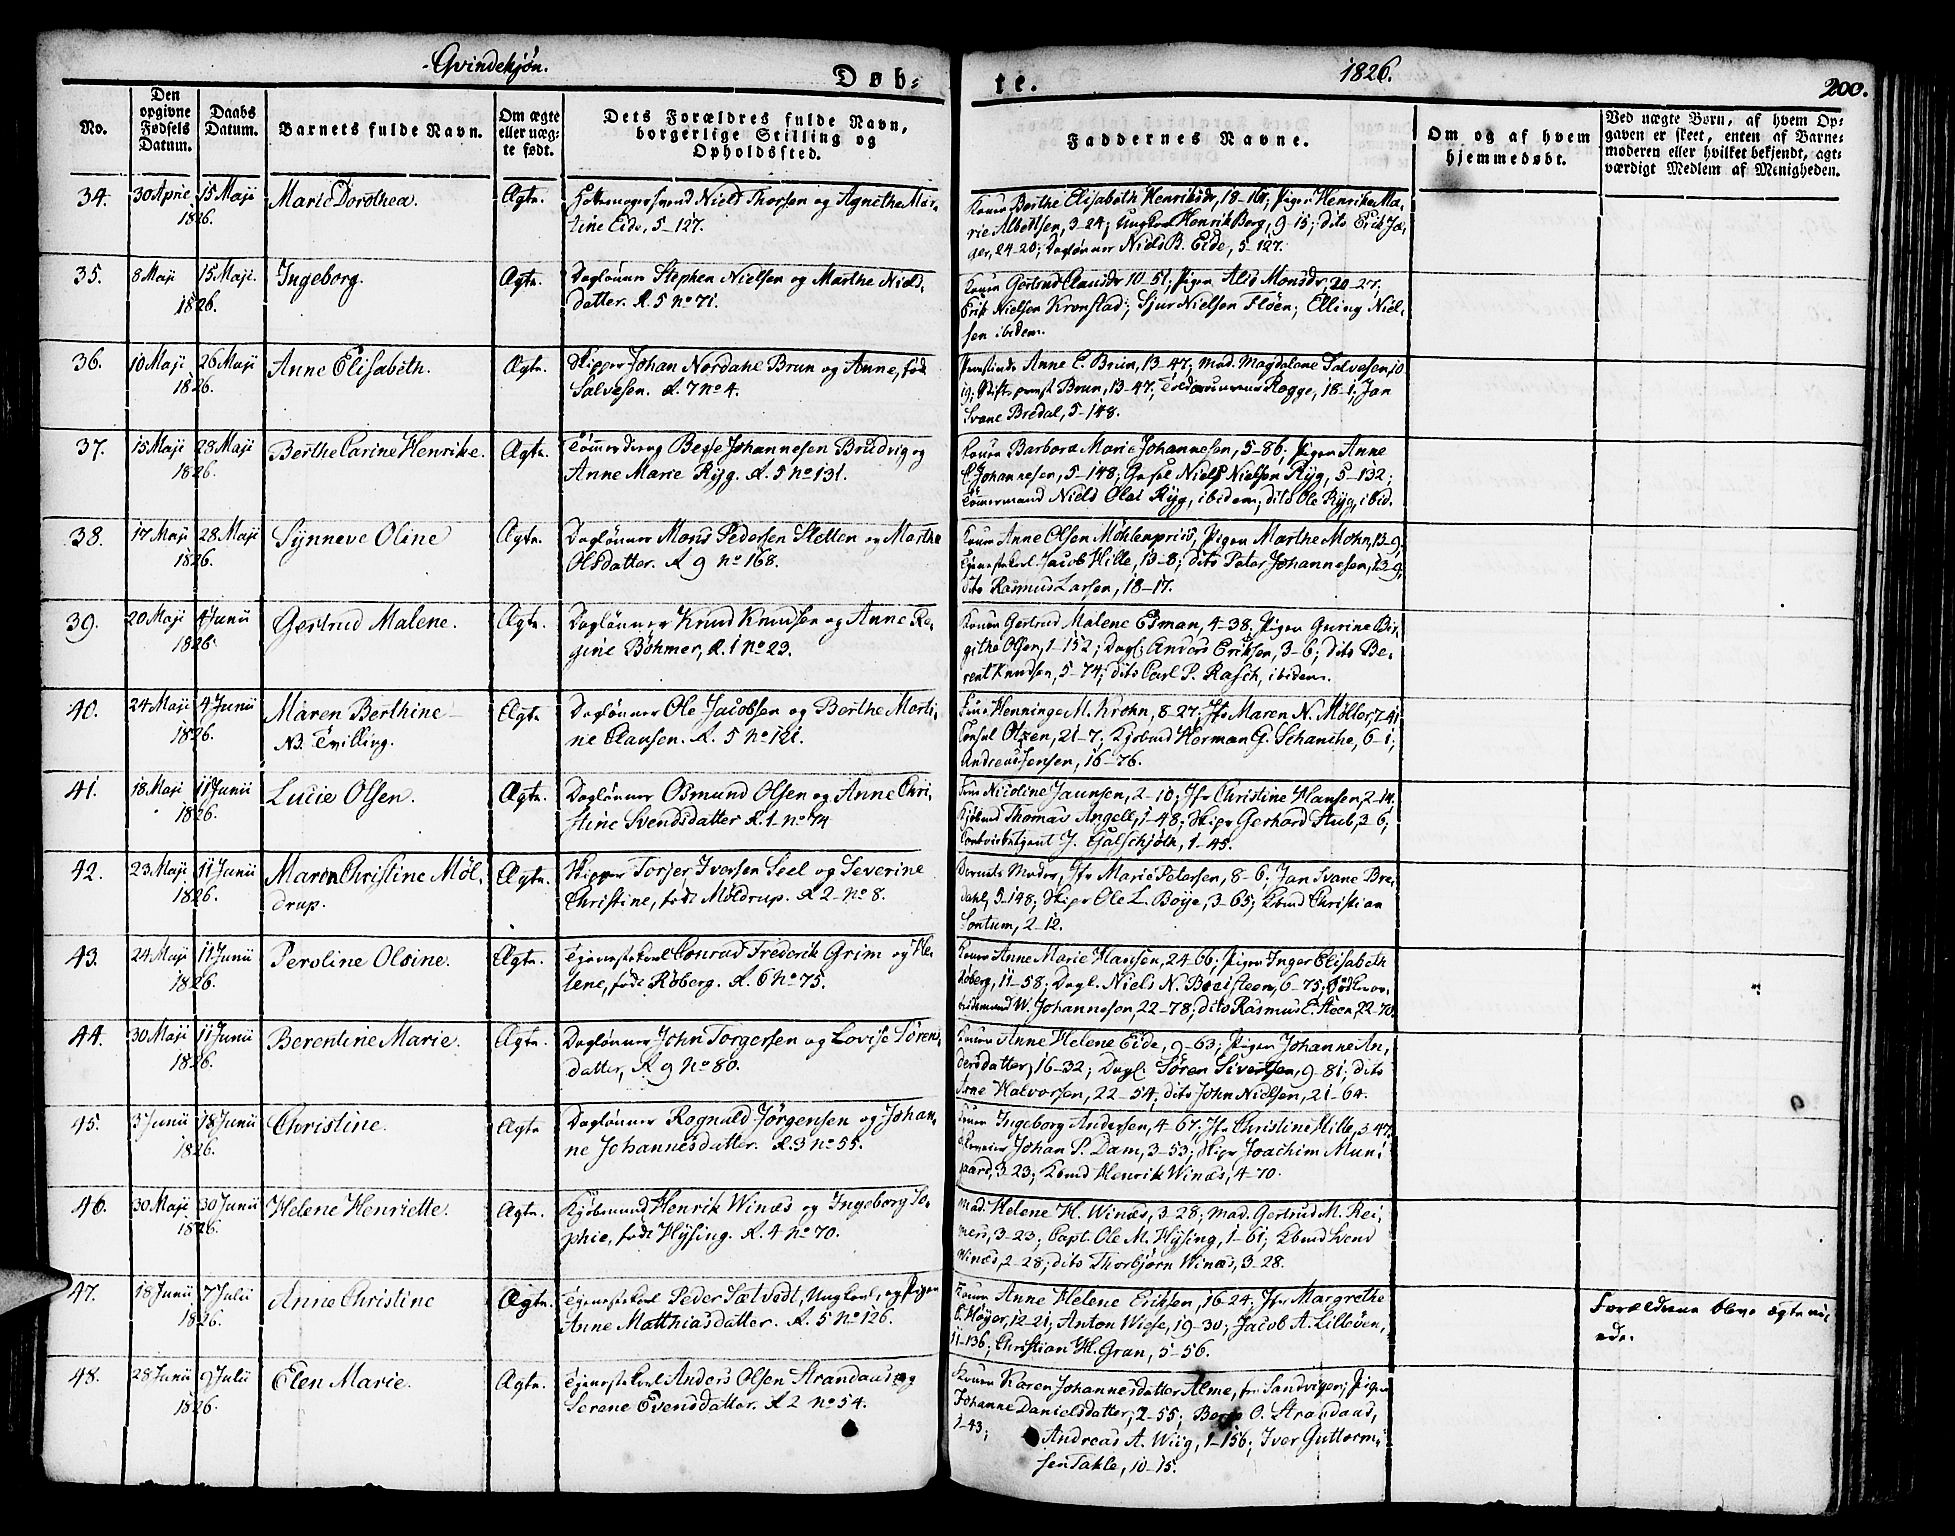 Qvindekjøn.
Døb-
te.
1826.
200.
No.
Den opgivne Fødsels Datum.
Daabs Datum.
Barnets fulde Navn.
Om ægte eller uæg-te født.
Dets Forældres fulde Navn, borgerlige Stilling og Opholdssted.
Faddernes Navne.
Om og af hvem hjemmedøbt.
Ved uægte Børn, af hvem Op-
gaven er skeet, enten af Barne-
moderen eller hvilket bekjendt, agt-
værdigt Medlem af Menigheden.
34. 30 April 1826. 15 Maji Marie Dorothea. Ægte. Niels Thorsen og Agnethe Mar-
tine Eide, 5-127.
Konen Berthe Elisabeth Henriksdr, 19-161; Pigen Henrike Ma-
rie Albettsen, 3-24; Ungkarl Henrik Berg, 9-15; dito Erik Jæ-
ger, 24-20; Daglønner Niels B. Eide, 5-127.
35. 8 Maji 1826. 15 Maji. Ingeborg. Ægte. Daglønner Stephen Nielsen og Marthe Niels-
datter. R. 5 No 71.
Konen Gertrud Clausdr 10-51; Pigen Alis Monsdr, 20-27;
Erik Nielsen Kronstad; Sjur Nielsen Fløen; Elling Niel-
sen ibidem.
36. 10 Maji 1826. 26 Maji Anne Elisabeth. Ægte. Skipper Johan Nordahl Brun og Anne, fød
Salvesen. R. 7 No 4.
Anne C. Brun, 13-47; Mad. Magdalene Salvesen, 10-
19; Stiftsprovst Brun, 13-47; Rogge, 18-1; Jan
Svane Bredal, 5-148.
37. 15 Maji 1826. 28 Maji Berthe Carine Henrike. Ægte. Tømmerdreng Berje Johannesen Brudvig og
Anne Marie Ryg. R. 5 No 131.
Konen Barbora Marie Johannesen, 5-86; Pigen Anne
C. Johannesen, 5-148; Niels Nielsen Ryg, 5-132;
Tømmermand Niels Olai Ryg, ibidem; dito Ole Ryg, ibid.
38. 17 Maji 1826. 28 Maji Synneve Oline Ægte. Daglønner Mons Pedersen Sletten og Marthe
Olsdatter. R 9 No 168.
Konen Anne Olsen Møhlenpriis, Pigen Marthe Mohn, 13-9;
Tjenestekarl Jacob Hille, 13-8; dito Peter Johannesen, 13-9;
dito Rasmus Larsen, 18-17.
39. 20 Maji 1826. 4 Junii Gertrud Malene. Ægte. Daglønner Knud Knudsen og Anne Re-
gine Böhmer, R. 1 No 23.
Konen Gertrud Malene Esman, 4-38. Pigen Gurine Bir-
githe Olsen, 1-152; Dagl. Anders Eriksen, 3-6; dito Be-
rent Knudsen, 5-74; dito Carl P. Rasch, ibidem.
40. 24 Maji 1826. 4 Junii Maren Berthine
NB. Tvilling. Ægte Daglønner Ole Jacobsen og Berthe Marti-
ne Clausen. R. 5 No 121.
Henninge M. Krohn, 8-27; Jfr Maren N. Møller, 7-41
Consul Olsen, 21-7; Kjøbmd Herman G. Schanche, 6-1;
Andreas Jensen, 16-76.
41. 18 Maji 1826. 11 Junii Lucie Olsen. Ægte. Daglønner Osmund Olsen og Anne Chri-
stine Svendsdatter R. 1 No 74
Nicoline Jaunsen, 2-10; Jfr Christine Hansen, 2-14.
Kjøbmd Thomas Angell, 1-48; Skipr Gerhard Stub, 3-6;
J. Galschjøth, 1-45.
42. 23 Maji 1826. 11 Junii Maren Christine Møl-
drup. Ægte. Skipper Torjer Iversen Seel og Severine
Christine, født Møldrup. R 2 No 8.
Barnets Moder, Jfr Marie Petersen, 8-6; Jan Svane Bre-
dahl, 5-148; Skipr Ole L. Bøye, 3-65; Kbmd Christian
Sontum, 2-12.
43. 24 Maji 1826. 11 Junii Peroline Olsine. Ægte. Tjenestekarl Conrad Frederik Grim og He-
lene, født Røberg. R. 6 No 75.
Konen Anne Marie Hansen, 24-66; Pigen Inger Elisabeth
Røberg, 11-58; Dagl. Niels N. Breisteen, 6-75;
W. Johannesen, 22-78; dito Rasmus E. Steen, 22-70.
44. 30 Maji 1826. 11 Junii Berentine Marie. Ægte. Daglønner John Torgersen og Lovise Sørens-
datter, R 9 No 80.
Konen Anne Helene Eide, 9-63; Pigen Johanne An-
dersdatter, 16-32; Dagl. Søren Sivertsen, 9-81; dito
Arne Halvorsen, 22-54; dito John Nielsen, 21-64.
45. 3 Junii 1826. 18 Junii Christine. Ægte Daglønner Rognald Jørgensen og Johan-
ne Johannesdatter. R. 3 No 55.
Konen Ingeborg Andersen, 4-67; Jfr Christine Hille, 3-47.
Johan P. Dam, 3-53; Skipr Joachim Mun-
paard, 3-23; Kbmd Henrik Winæs, 4-70.
46. 30 Maji 1826. 30 Junii Helene Henriette. Ægte. Kjøbmand Henrik Winæs og Ingeborg So-
phie, født Hysing. R. 4 No 70.
Mad. Helene H. Winæs, 3-28; Mad. Gertrud M. Rei-
mers, 3-23; Capt. Ole M. Hysing, 1-61; Kbmd Lene
Winæs, 2-28; dito Thorbjørn Winæs, 3-28.
47. 18 Junii 1826. 7 Julii Anne Christine Ægte. Tjenestekarl Peder Sætvedt, Ungkarl, og Pigen
Anne Matthiasdatter. R. 5 No 126.
Konen Anne Helene Eriksen, 16-24; Jfr Margrethe
C. Høyer, 12-21; Anton Wiese, 19-30; Jacob A. Lilleøen,
11-136; Christian H. Gran, 5-56.
Forældrene bleve ægtevi-
ede.
48. 28 Junii 1826. 9 Julii Elen Marie. Ægte. Tjenestekarl Anders Olsen Strandaas og
Serene Evensdatter. R 2 No 54.
Konen Karen Johannesdatter Alme, fra Sandvigen; Pigen
Johanne Danielsdatter, 2-55; Berje O. Strandaas,
1-43;
Andreas A. Wiig, 1-156; Iver Guttorm-
sen Takle, 10-15.